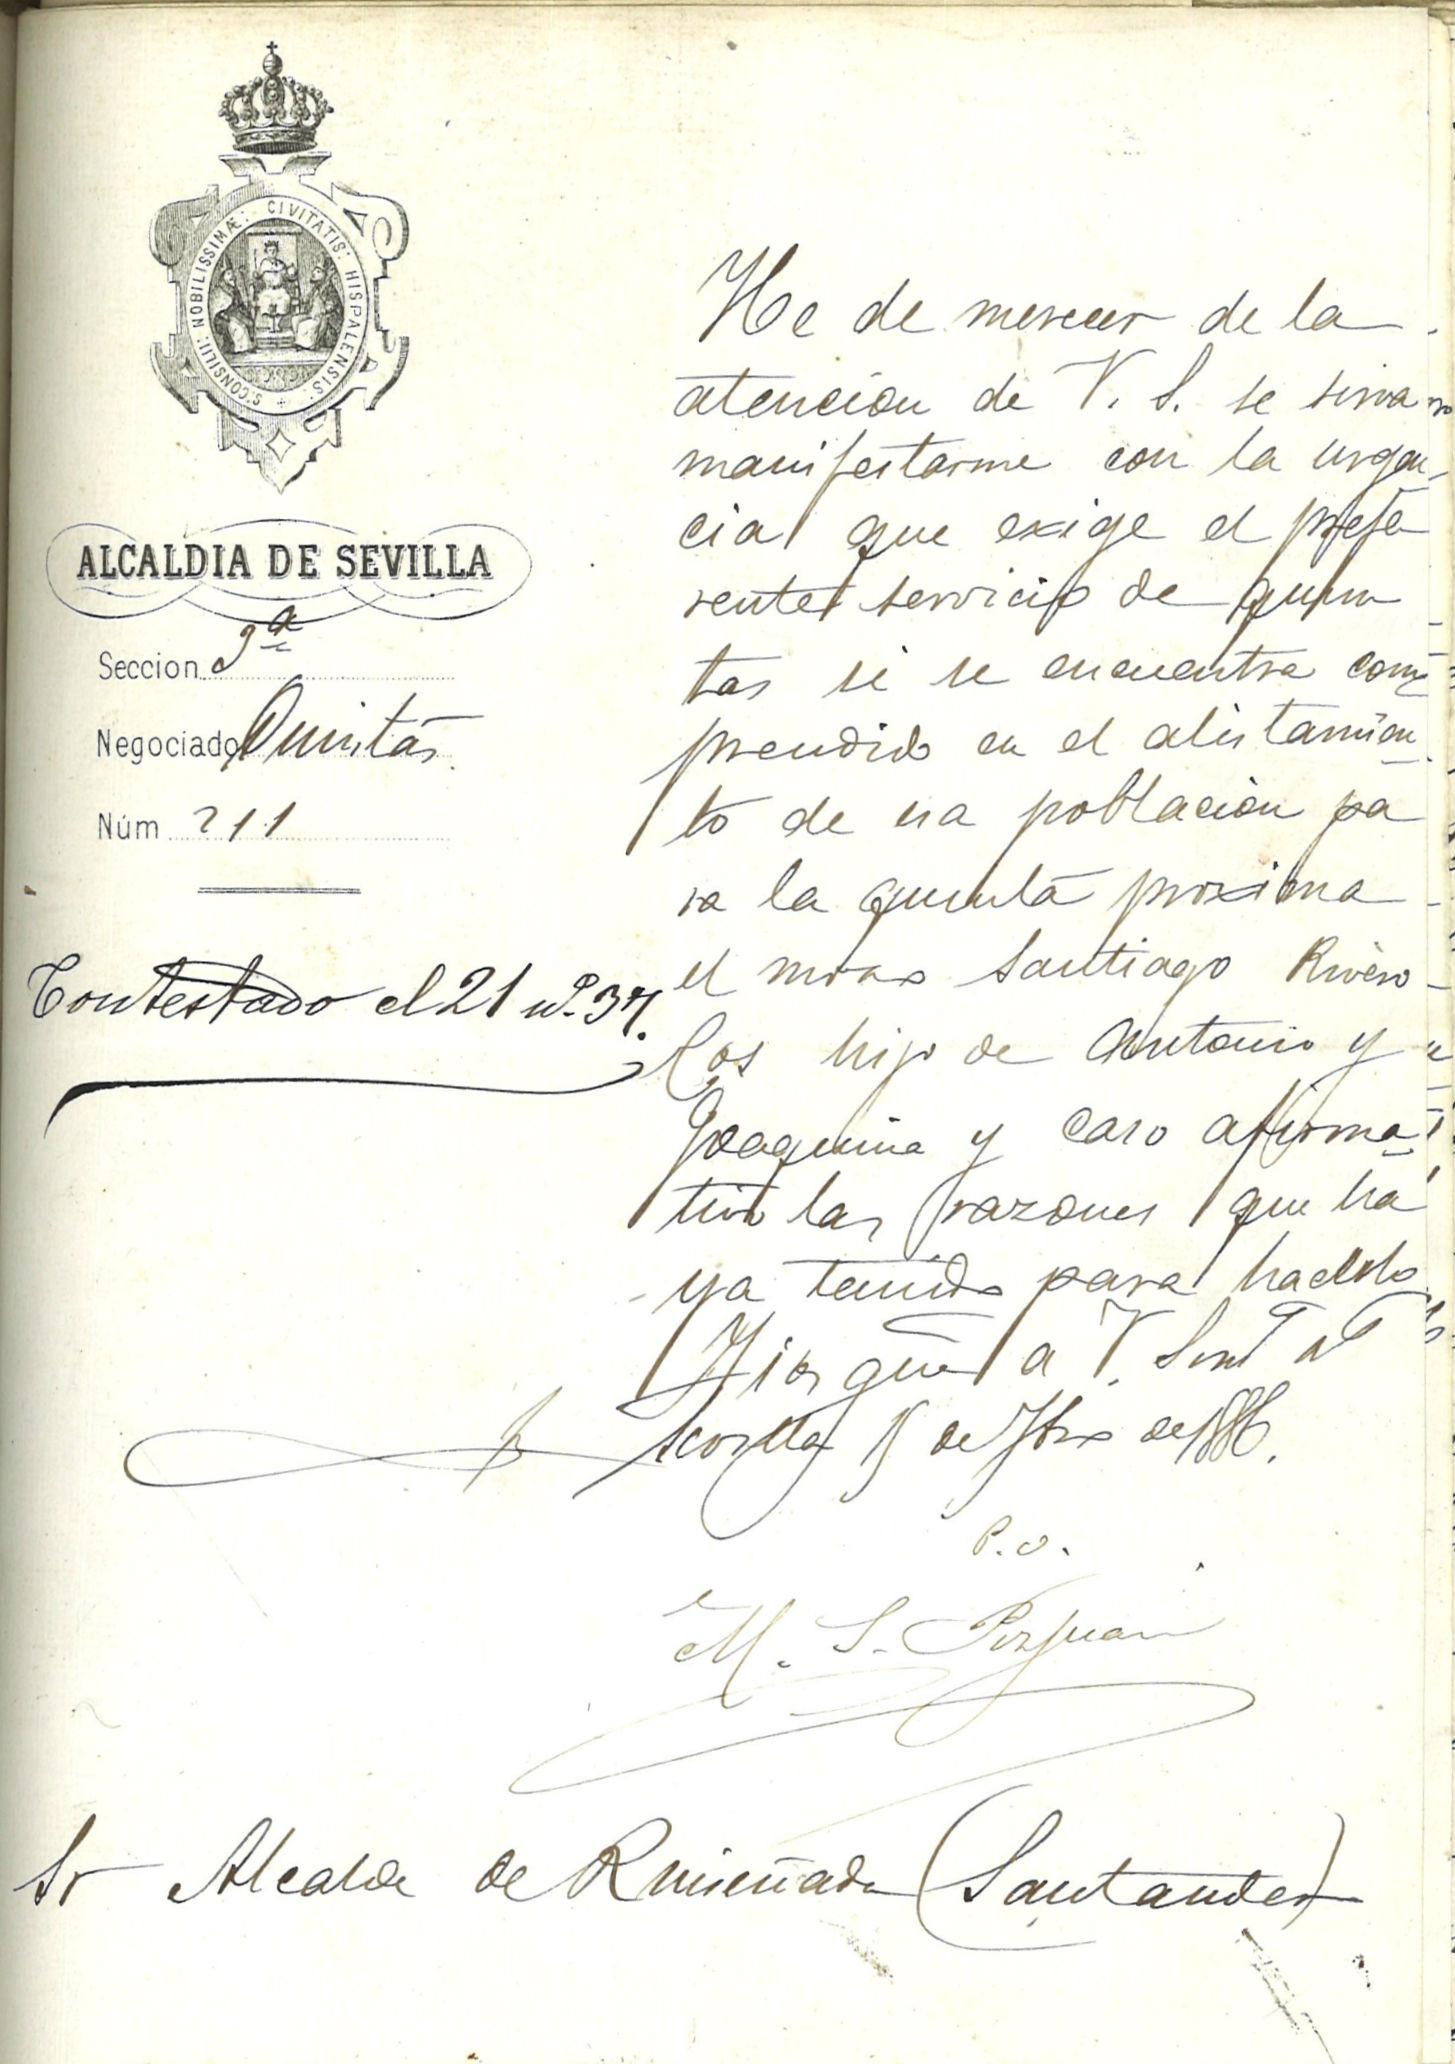 S. CONSILII: NOBILISSIMÆ: CIVITATIS: HISPALENSIS:
ALCALDIA DE SEVILLA
Seccion 3ª
Negociado Quintas
Núm 211
Contestado el 21 nº 37.
He de merecer de la
atencion de V. S. se sirva
manifestarme con la urgen
cia que exige el prefe
rente servicio de quin
tas si se encuentra com
prendido en el alistamien
to de esa poblacion pa
ra la quinta proxima
el mozo Santiago Rivero
Cos hijo de Antonio y
Joaquina y caso afirma
tivo las razones que ha
ya tenido para hacerlo
Dios gue a V. S. m.s a.s
Sevilla 15 de de 1886.
P. O.
M. S. Pizjuan
Sr Alcalde de Ruiseñada (Santander)